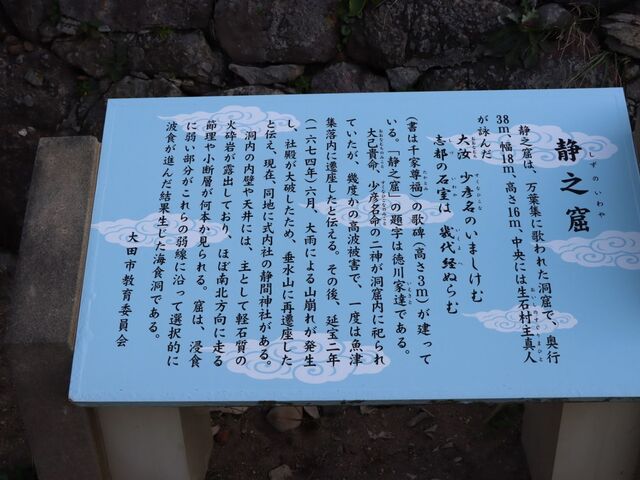 静之窟
しずのいわや
静之窟は、万葉集に歌われた洞窟で、奥行
38m、幅18m、高さ16m、中央には生石村主真人
おいしのすぐりまひと
が詠んだ
大汝　少彦名のいましけむ
おおなむち　すくなひこな
志都の石室は　幾代経ぬらむ
いわや　いくよ
(書は千家尊福)の歌碑(高さ3m)が建って
たかとみ
いる。「静之窟」の題字は徳川家達である。
いえさと
大己貴命、少彦名命の二神が洞窟内に祀られ
おおなむちのみこと　すくなひこなのみこと
ていたが、幾度かの高波被害で、一度は魚津
集落内に遷座したと伝える。その後、延宝二年
(一六七四年)六月、大雨による山崩れが発生
し、社殿が大破したため、垂水山に再遷座した
と伝え、現在、同地に式内社の静間神社がある。
洞内の内壁や天井には、主として軽石質の
火砕岩が露出しており、ほぼ南北方向に走る
節理や小断層が何本か見られる。窟は、浸食
に弱い部分がこれらの弱線に沿って選択的に
波食が進んだ結果生じた海食洞である。
大田市教育委員会